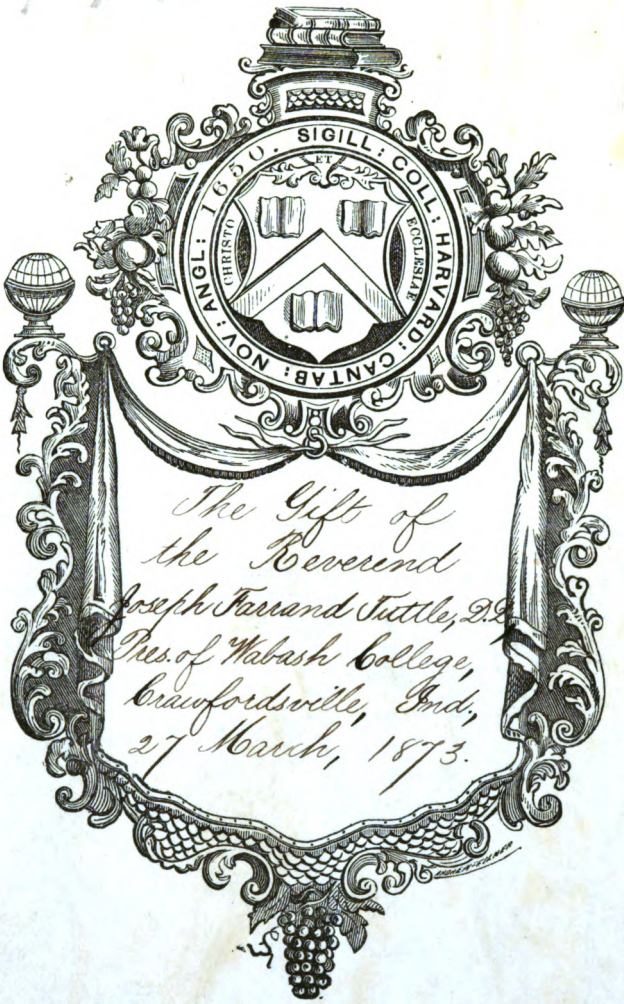 SIGILL: COLL: HARVARD: CANTAB: NOV: ANGL: 1650.
CHRISTO ET ECCLESIAE
The Gift of
the Reverend
Joseph Farrand Tuttle, D.D.
Pres. of Wabash College,
Crawfordsville, Ind.,
27 March, 1873.